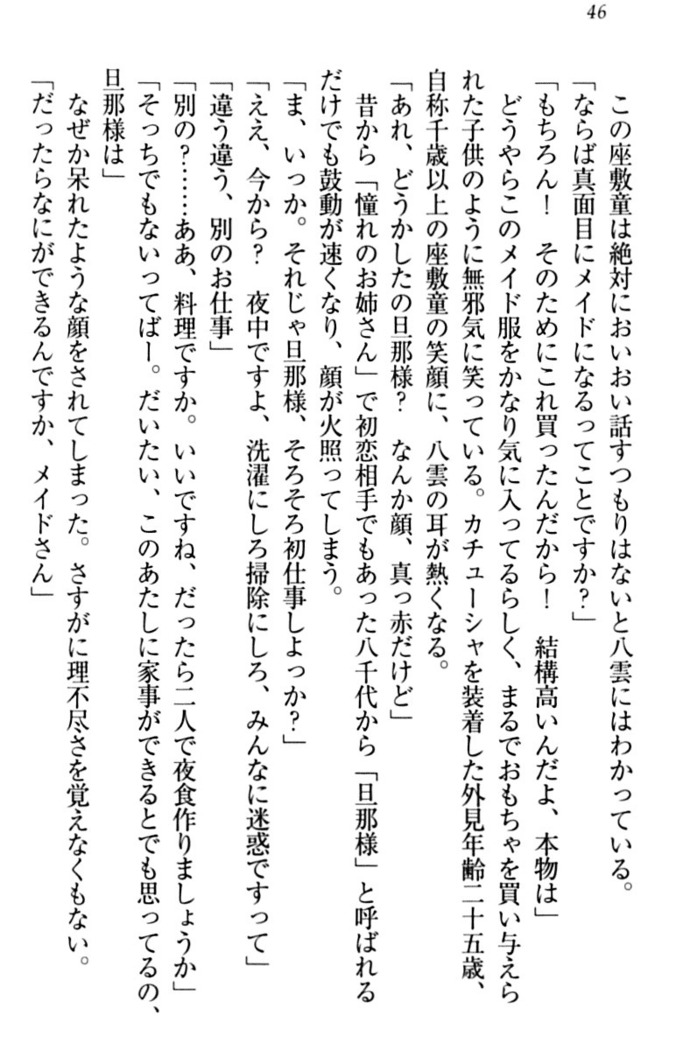 46
この座敷童は絶対においおい話すつもりはないと八雲にはわかっている。
「ならば真面目にメイドになるってことですか?」
「もちろん!　そのためにこれ買ったんだから!　結構高いんだよ、本物は」
どうやらこのメイド服をかなり気に入ってるらしく、まるでおもちゃを買い与えら
れた子供のように無邪気に笑っている。カチューシャを装着した外見年齢二十五歳、
自称千歳以上の座敷童の笑顔に、八雲の耳が熱くなる。
「あれ、どうかしたの旦那様?　なんか顔、真っ赤だけど」
昔から「憧れのお姉さん」で初恋相手でもあった八千代から「旦那様」と呼ばれる
だけでも鼓動が速くなり、顔が火照ってしまう。
「ま、いっか。それじゃ旦那様、そろそろ初仕事しよっか?」
「ええ、今から?　夜中ですよ、洗濯にしろ掃除にしろ、みんなに迷惑ですって」
「違う違う、別のお仕事」
「別の?……ああ、料理ですか。いいですね、だったら二人で夜食作りましょうか」
「そっちでもないってばー。だいたい、このあたしに家事ができるとでも思ってるの、
旦那様は」
なぜか呆れたような顔をされてしまった。さすがに理不尽さを覚えなくもない。
「だったらなにができるんですか、メイドさん」